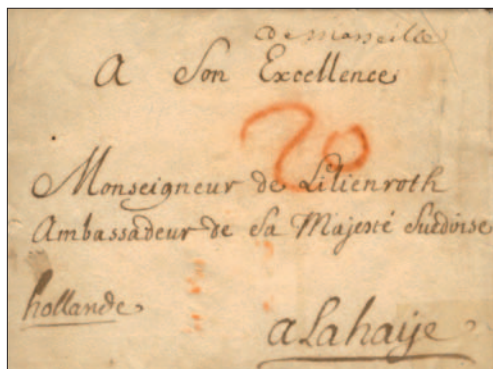 de Marseille
A Son Excellence
20
Monseigneur de Lilienroth
Ambassadeur de Sa Majesté Suedoise
hollande
a Lahaije